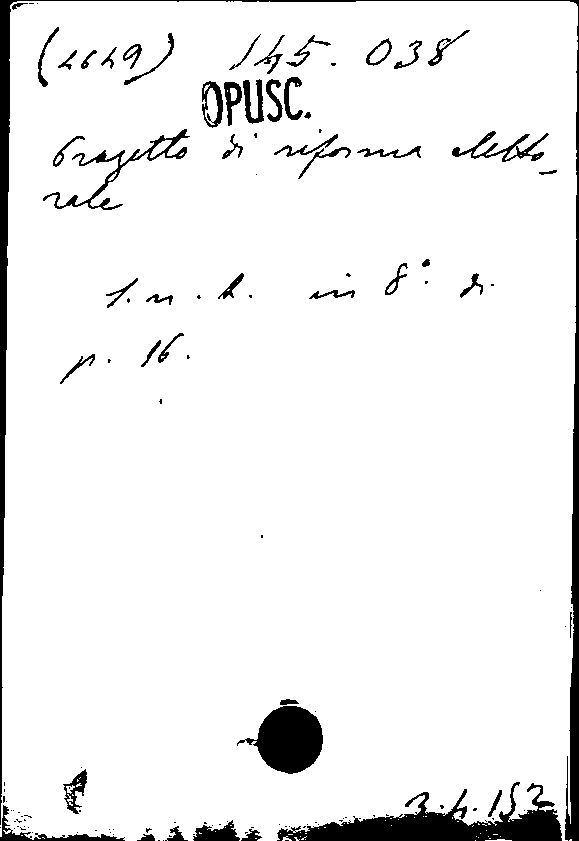 (2629) 145.038
OPUSC.
Progetto di riforma eletto-
rale
s. n. t. in 8°. di
p. 16.
3.4.152